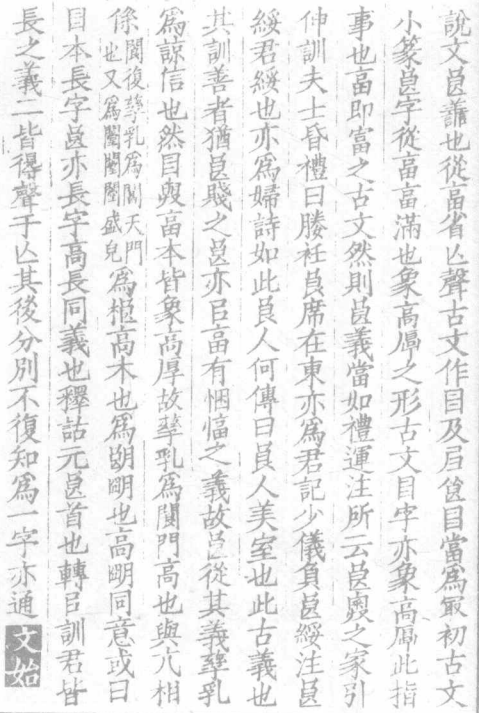 說文㫐譱也從畗省亾聲古文作目及㫐㫐目當爲最初古文
小篆㫐字從畗畗滿也象高厚之形古文目字亦象高厚此指
事也畗即富之古文然則㫐義當如禮運注所云㫐奧之家引
伸訓夫士昏禮曰媵衽㫐席在東亦爲君記少儀負㫐綏注㫐
綏君綏也亦爲婦詩如此㫐人何傳曰㫐人美室也此古義也
其訓善者猶㫐賤之㫐亦㠯畗有悃愊之義故㫐從其義孳乳
爲諒信也然目與畗本皆象高厚故孳乳爲閬門高也與亢相
係閬復孳乳爲閬天門
也又爲闛闛闛盛皃爲桹高木也爲朖朙也高朙同意或曰
目本長字㫐亦長字高長同義也釋詁元㫐首也轉㠯訓君皆
長之義二皆得聲于亾其後分別不復知爲一字亦通 文始